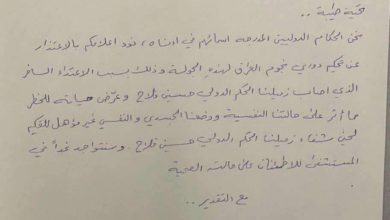 تحية طيبة ..
نحن الحكام الدوليين المدرجه اسمائهم في ادناه ، نود اعلامكم بالاعتذار
عن تحكيم دوري نجوم العراق لهذه الجولة وذلك بسبب الاعتداء السافر
الذي اصاب زميلنا الحكم الدولي حسين فلاح وعرّض حياته للخطر
مما أثر على حالتنا النفسية ووضعنا الجسدي والنفسي غير مؤهل للتحكيم
لحين شفاء زميلنا الحكم الدولي حسين فلاح . وسنتواجد غداً في
المستشفى للاطمئنان على حالته الصحية
مع التقدير ..